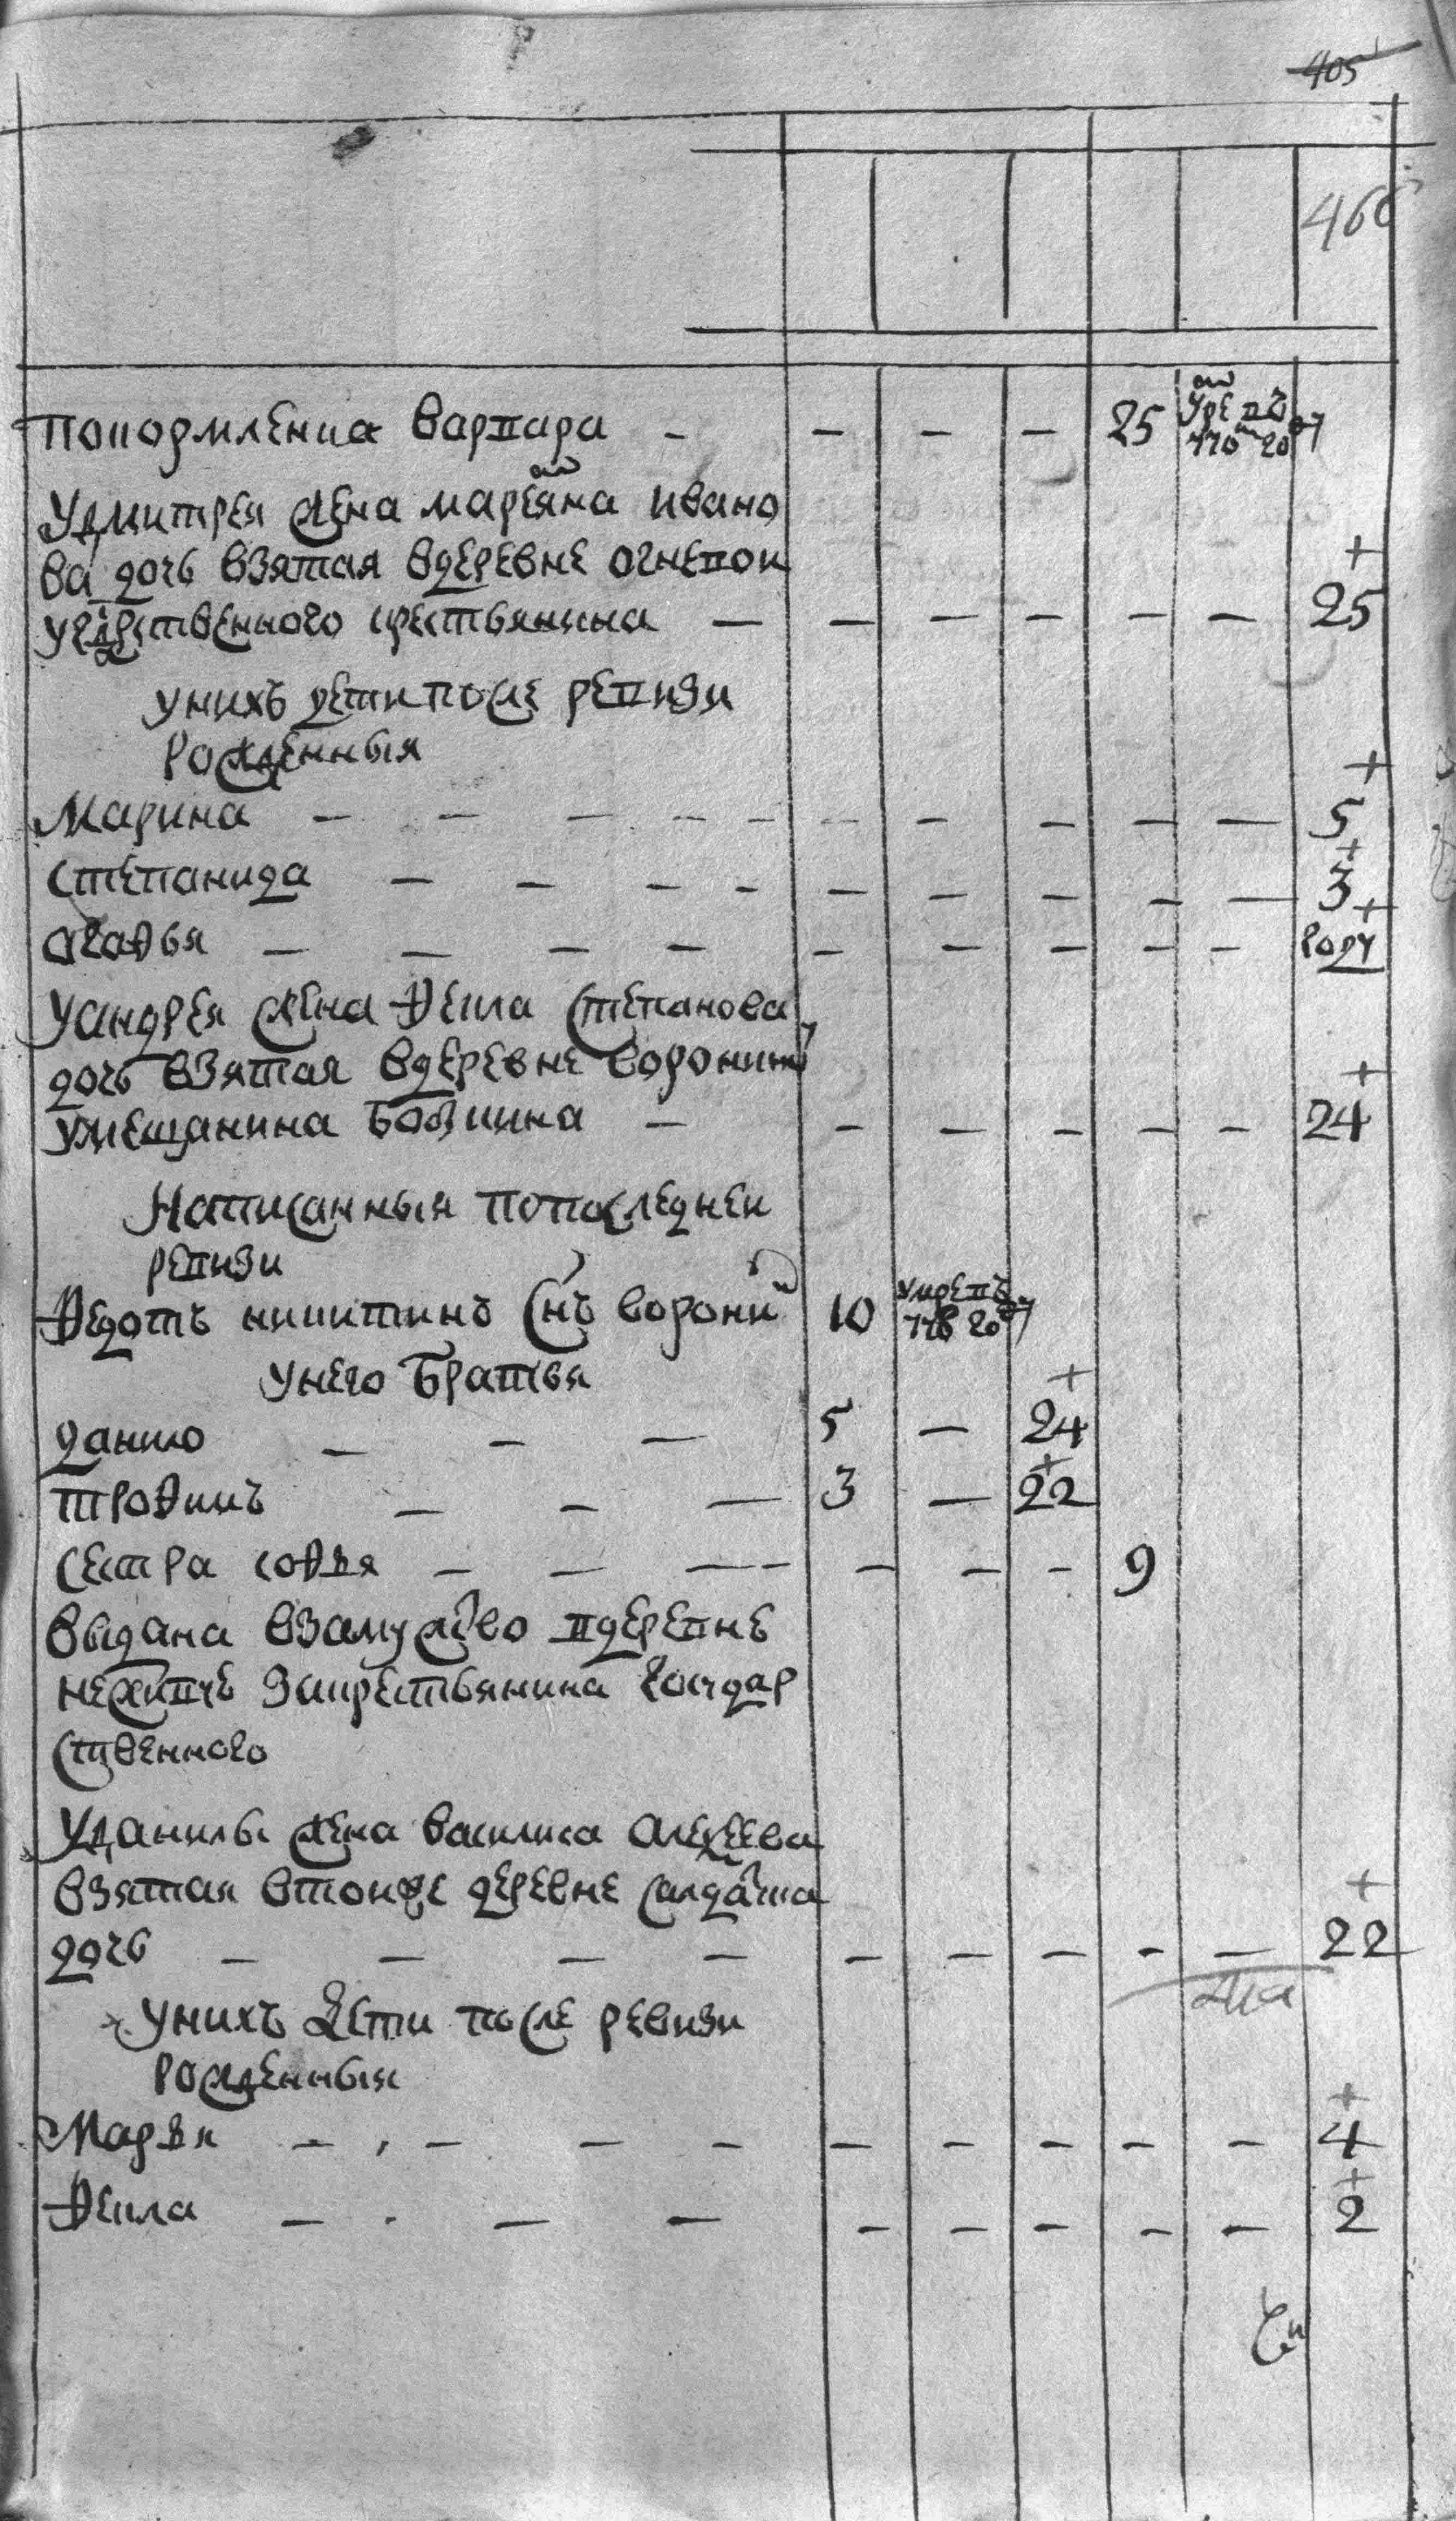 405
466
покормленица Варвара — — — — 25
У Дмитрея жена Маремяна Ивано
ва дочь взятая в деревне Огневой
у гдрственного крестьянина — — — — — — 25
у них дети после ревизи
рожденныя
Марина — — — — — — — — — — 5
Степанида — — — — — — — — — 3
Агафья — — — — — — — — — году
У Андрея жена Фекла Степанова
дочь взятая в деревне Воронин
у мещанина — — — — — — 24
Написанныя по последней
ревизи
Федотъ Никитинъ снъ Воронин 10
у него братья
Данило — — — 5 — 24
Трофимъ — — — 3 — 22
сестра Софья — — — — — — — 9
выдана в замужство в деревне
за крестьянина государ
ственного
У Данилы жена Василиса Алексеева
взятая в той же деревне салдатска
дочь — — — — — — — — — 22
у нихъ дети после ревизи
рожденныя
Марья — — — — — — — — — 4
Фекла — — — — — — — — 2